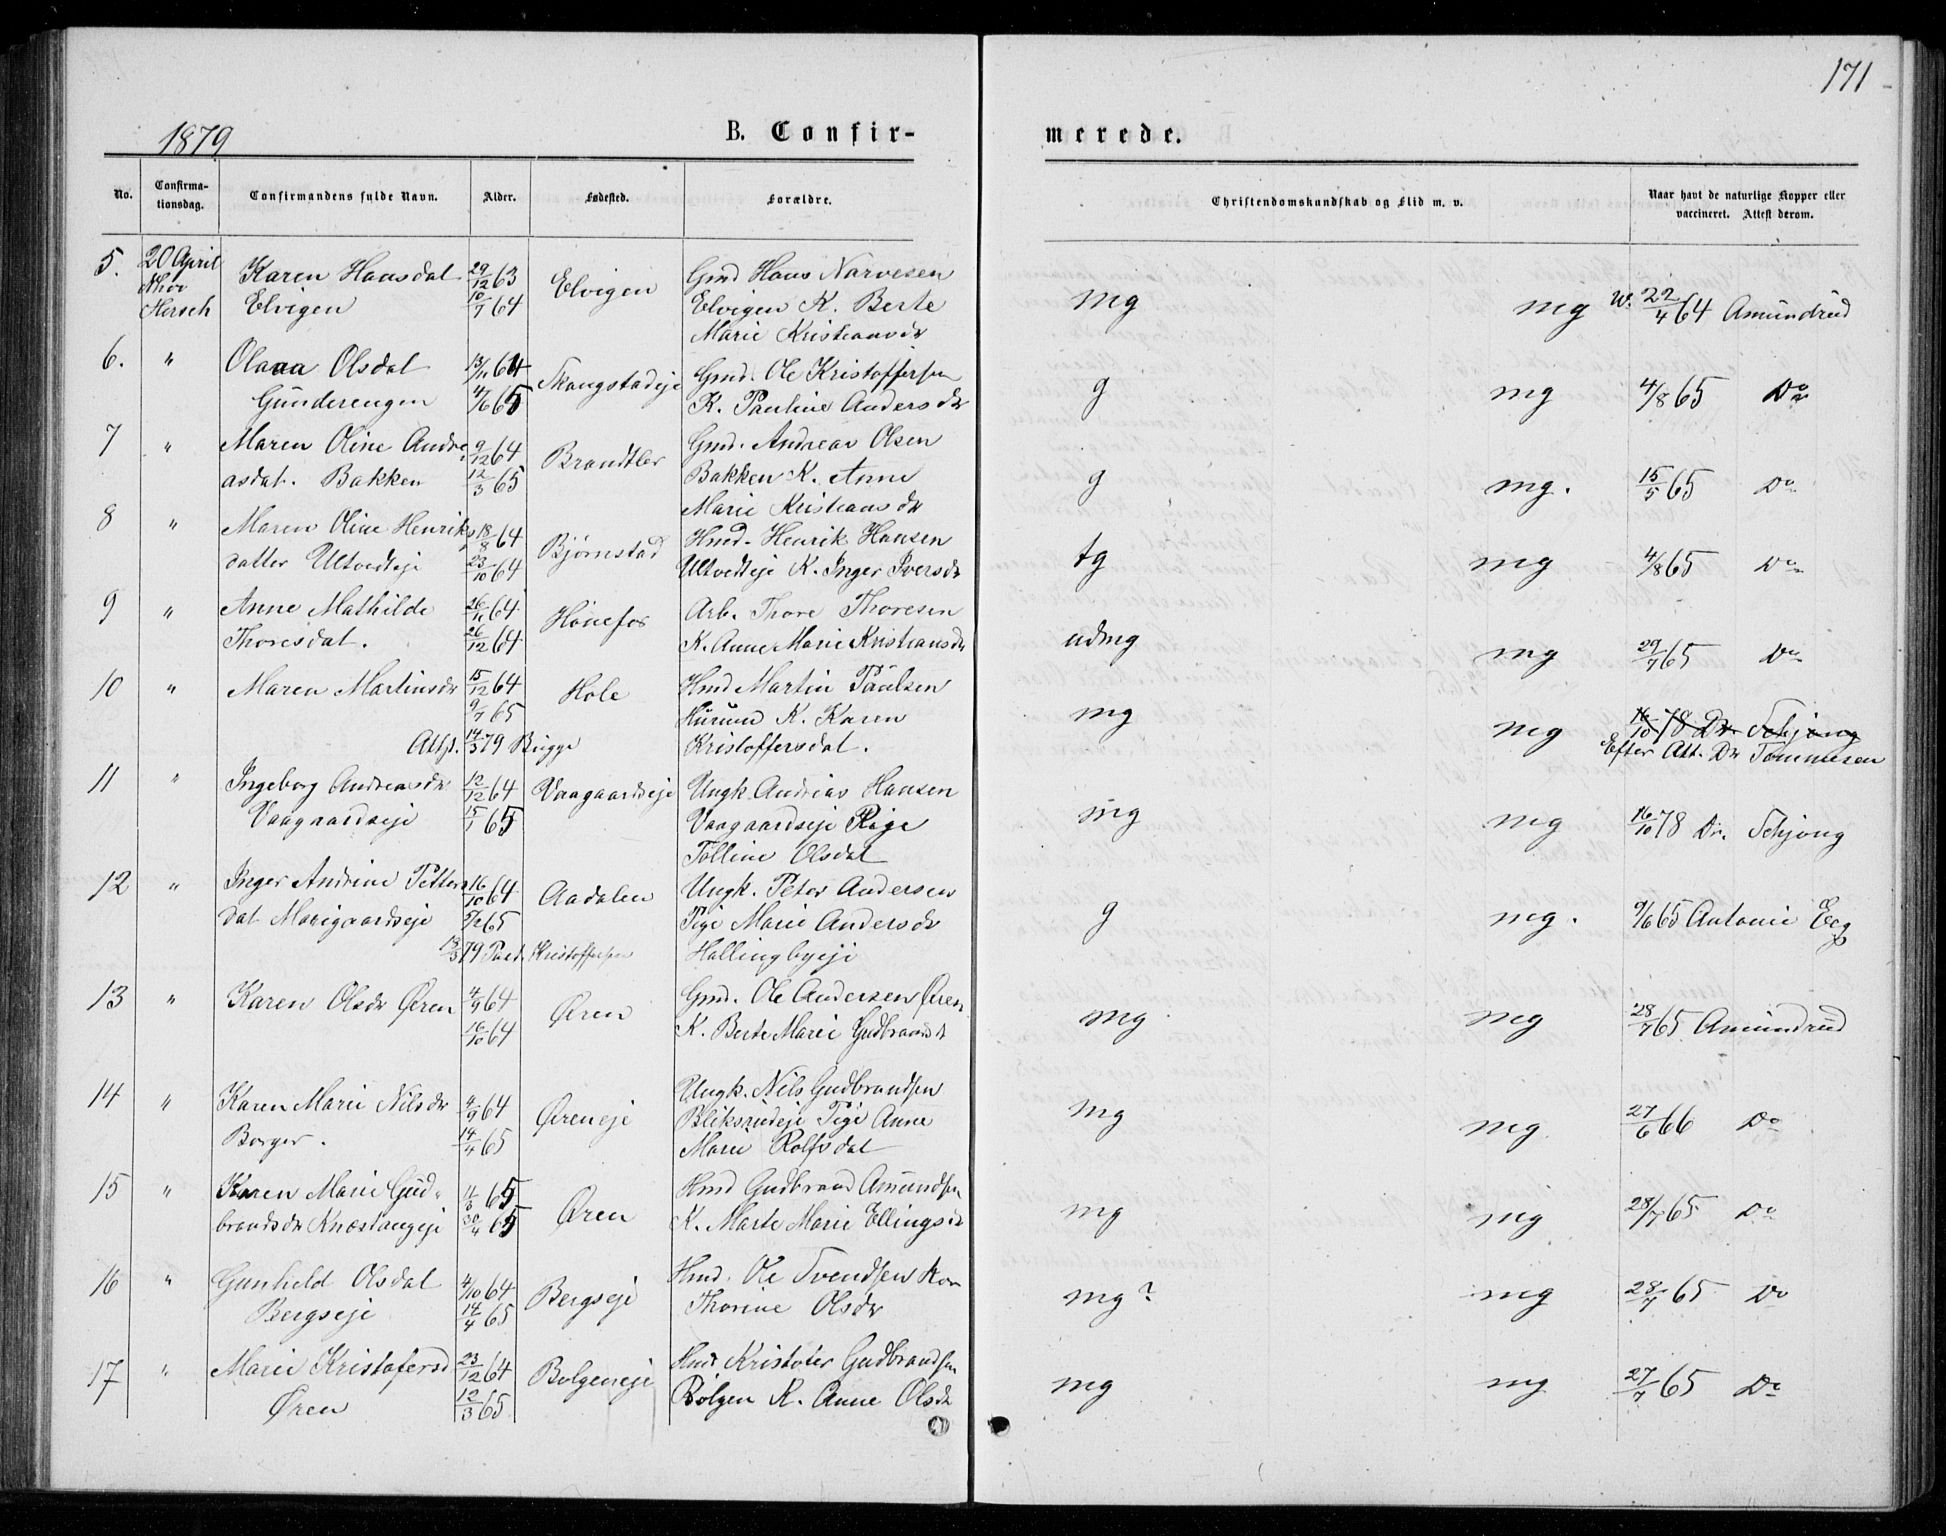 171
1879
B. Confir-
merede.
No.
Confirma-
tionsdag.
Confirmandens fulde Navn.
Alder.
Fødested.
Forældre.
Christendomskundskab og Flid m. v.
Naar havt de naturlige Kopper eller
vaccineret. Attest derom.
5. 20 April Karen Hansdat 29/12 63 Elvigen Gmd Hans Narvesen mg mg 22/4 64 Amundrud
Elvigen 10/7 64 Elvigen K. Berte
Marie Kristiansdr
6. " Olava Olsdat 13/11 64 Skougstadeje Gmd. Ole Kristoffersen g mg 4/8 65 Do
Gunderengen 4/6 65 K. Pauline Andersdr
7 " Maren Oline Andre- 9/12 64 Brandtler Gmd. Andreas Olsen g mg. 15/5 65 Do
asdat. Bakken 12/3 65 Bakken K. Anne
Marie Kristiansdr
8 " Maren Oline Henriks 18/8 64 Bjørnstad Hmd. Henrik Hansen tg mg 4/8 65 Do
datter Ultvedteje 23/10 64 Ultvedteje K. Inger Iversdr
9 " Anne Mathilde 26/11 64 Hønefos Arb. Thore Thoresen udmg mg 29/7 65 Do
Thoresdat. 26/12 64 K. Anne Marie Kristiansdr
10 " Maren Martinsdr 15/12 64 Hole Hmd Martin Paulsen mg mg 16/10 78 Dr. Schjong
9/7 65 Hurum K. Karen Efter Att. Dr Tommesen
Atts. 14/3 79 Bugge Kristoffersdat.
11 " Ingeborg Andreasdr 12/12 64 Vaagaardseje Ungk. Andreas Hansen mg mg 16/10 78 Dr. Schjong
Vaagaardseje 15/1 65 Vaagaardseje Pige
Tolline Olsdat
12 " Inger Andrine Petters 16/10 64 Aadalen Ungk. Peter Andersen g mg. 9/6 65 Antonie Eeg
dat Morigaardseje 5/2 65 Pige Marie Andersdr
13/3 79 Past. Kristoffersen Hallingbyeje
13 " Karen Olsdr Øren 4/9 64 Øren Gmd. Ole Andersen Øren mg mg 28/7 65 Amundrud
16/10 64 K. Berte Marie Gudbrandsdr
14 " Karen Marie Nilsdr 4/9 64 Øreneje Ungk. Nils Gudbrandsen mg mg 27/6 66 Do
Borger. 14/4 65 Bliksrudeje Pige Anne
Marie Rolfsdat
15 " Karen Marie Gud- 11/3 65 Øren Hmd Gudbrand Amundsen mg mg 28/7 65 Do
brandsdr Knæstangeje 30/4 65 K. Marte Marie Ellingsdr
16 " Gunhild Olsdat 4/10 64 Bergseje Hmd. Ole Svendsen Kon mg? mg 28/7 65 Do
Bergseje 14/4 65 Thorine Olsdr
17 " Marie Kristofersd 23/12 64 Bølgeneje Hmd Kristofer Gudbrandsen mg mg 27/7 65 Do
Øren 12/3 65 Bølgen K. Anne Olsdr